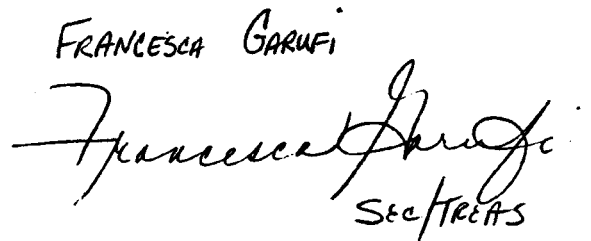 FRANCESCA GARUFi
Francesca Garufi
SEC/TREAS